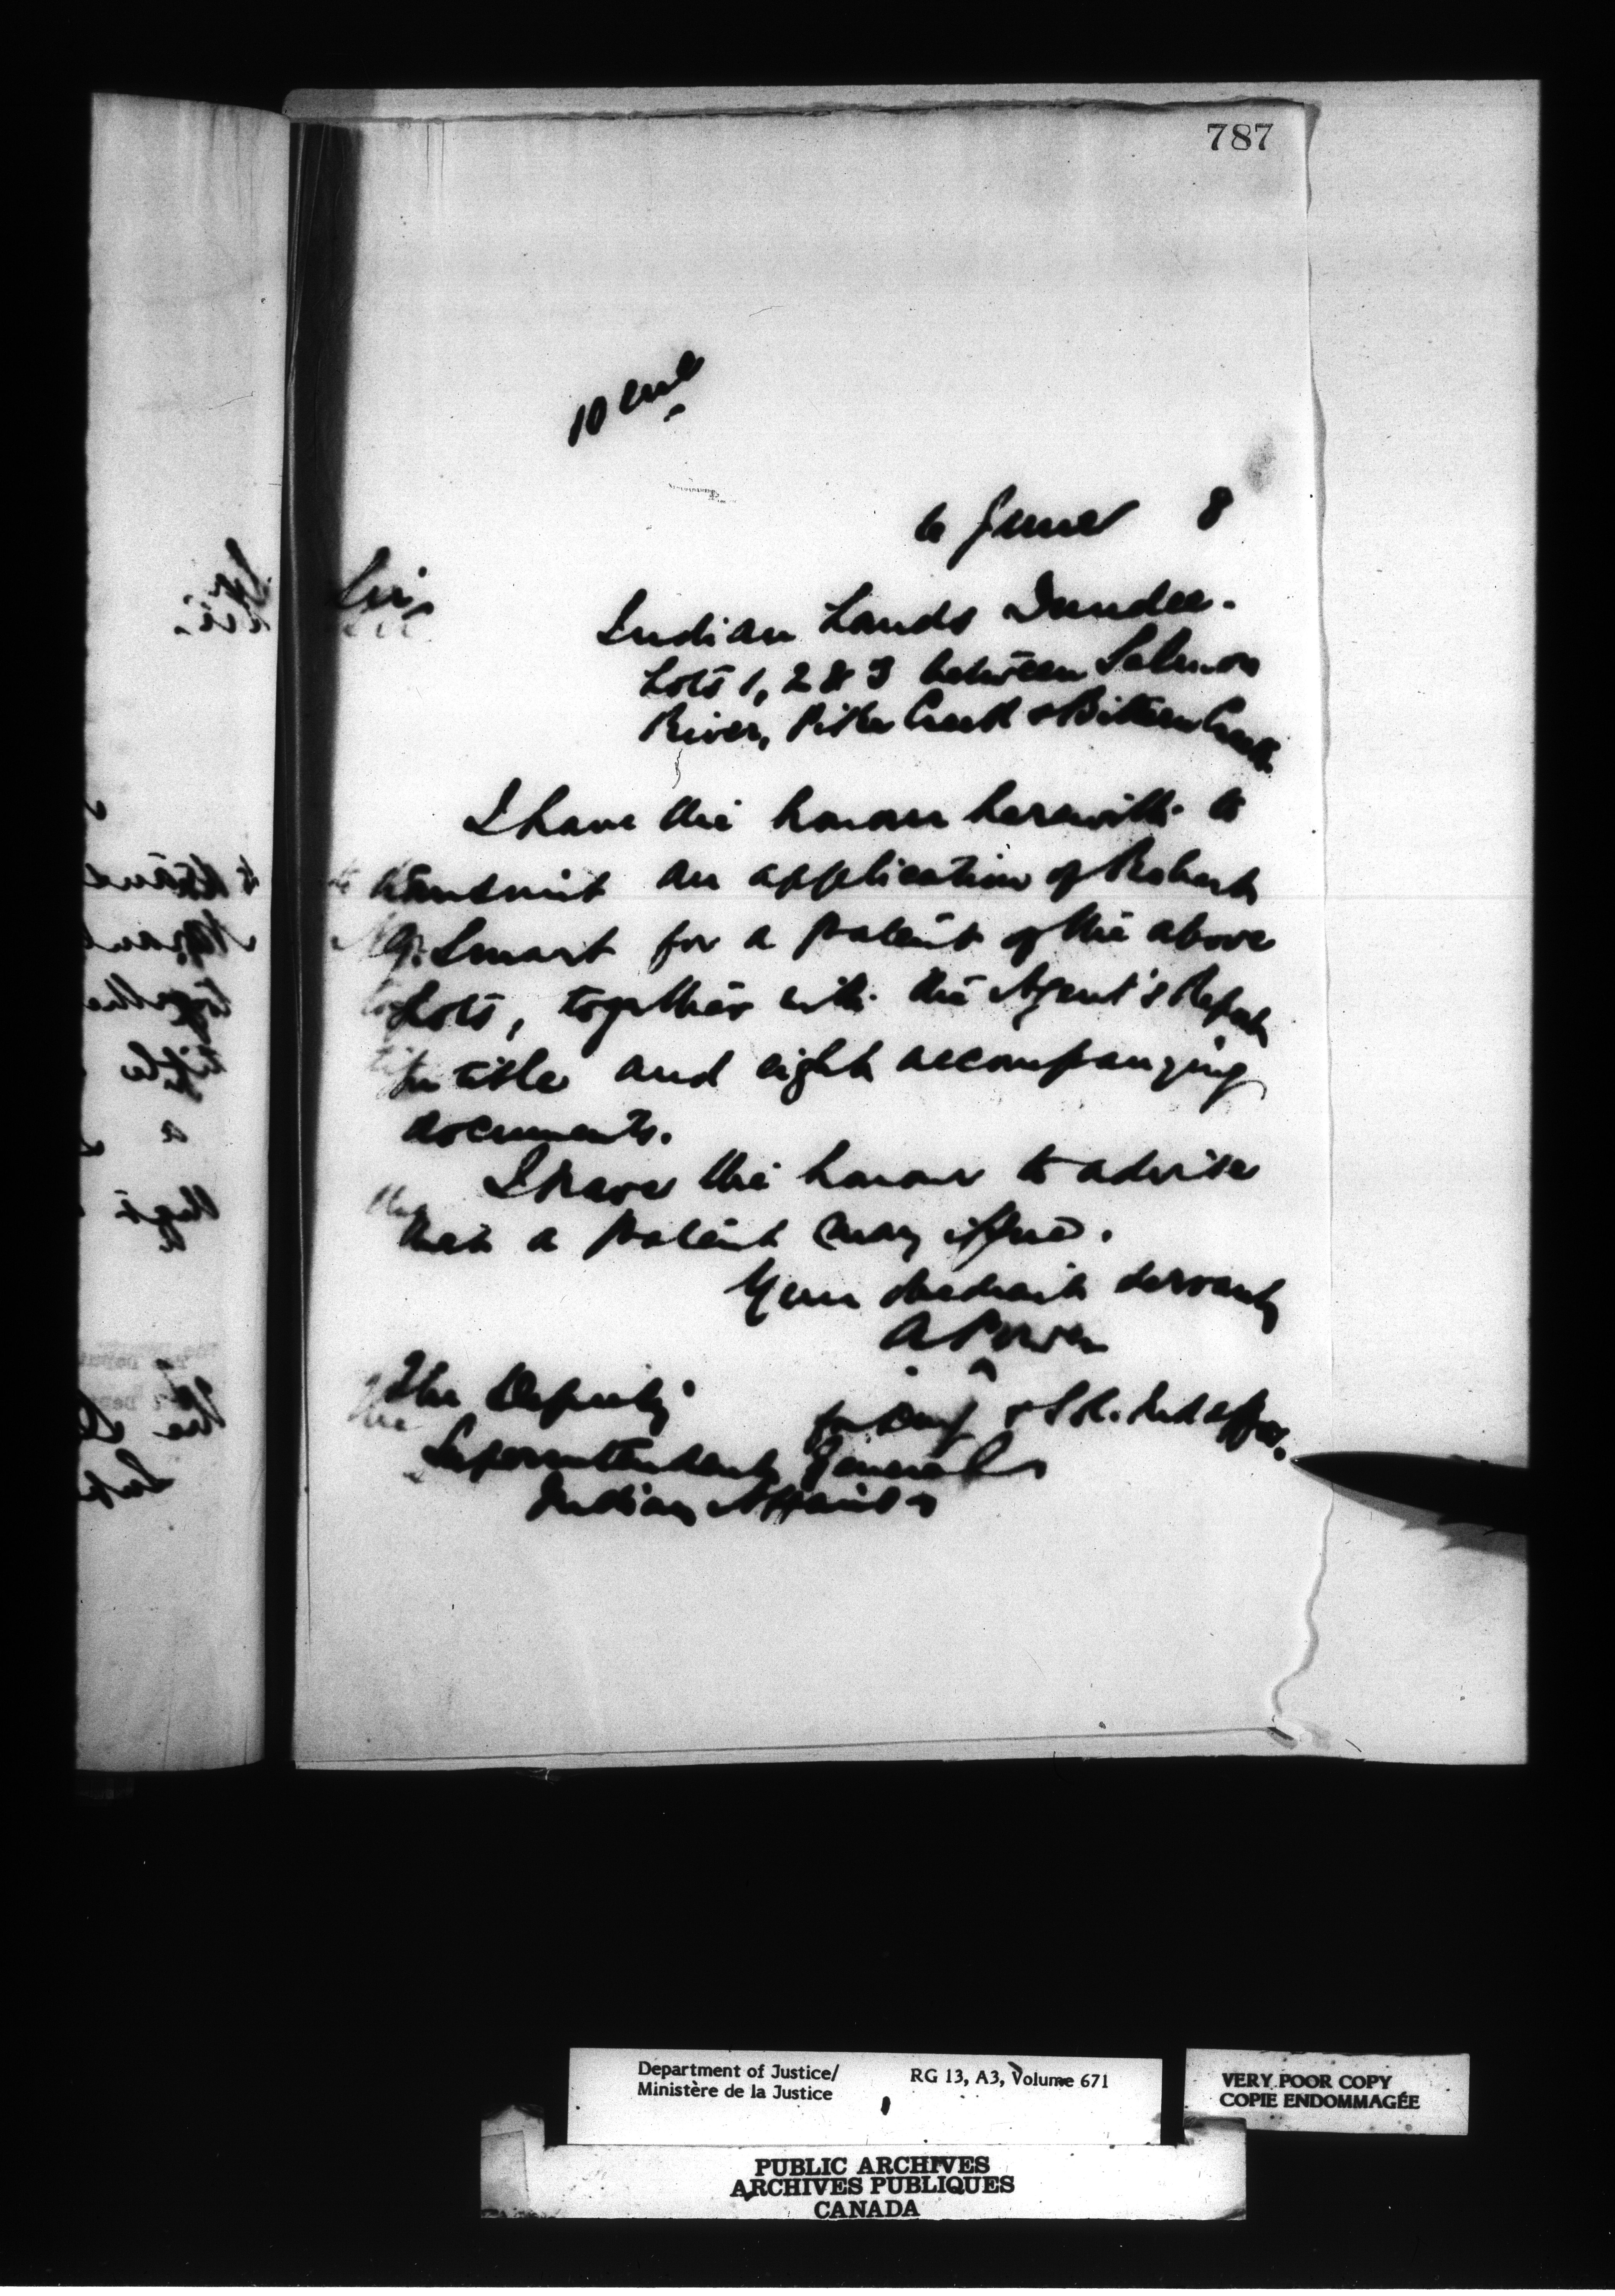 787
10 encl
6 June 8
Sir,
Indian Lands Dundee.
Lots 1, 2 & 3 between Salmon
River, Pike Creek & Bittern Creek.
I have the honour herewith to
transmit an application of Robert
Smart for a patent of the above
Lots, together with the Agent's Report
on title and eight accompanying
documents.
I have the honour to advise
that a patent may issue.
Your obedient servant
A Power
for
The Deputy
Superintendent General
Indian Affairs
Department of Justice/ RG 13, A3, Volume 671
Ministère de la Justice
VERY POOR COPY
COPIE ENDOMMAGÉE
PUBLIC ARCHIVES
ARCHIVES PUBLIQUES
CANADA